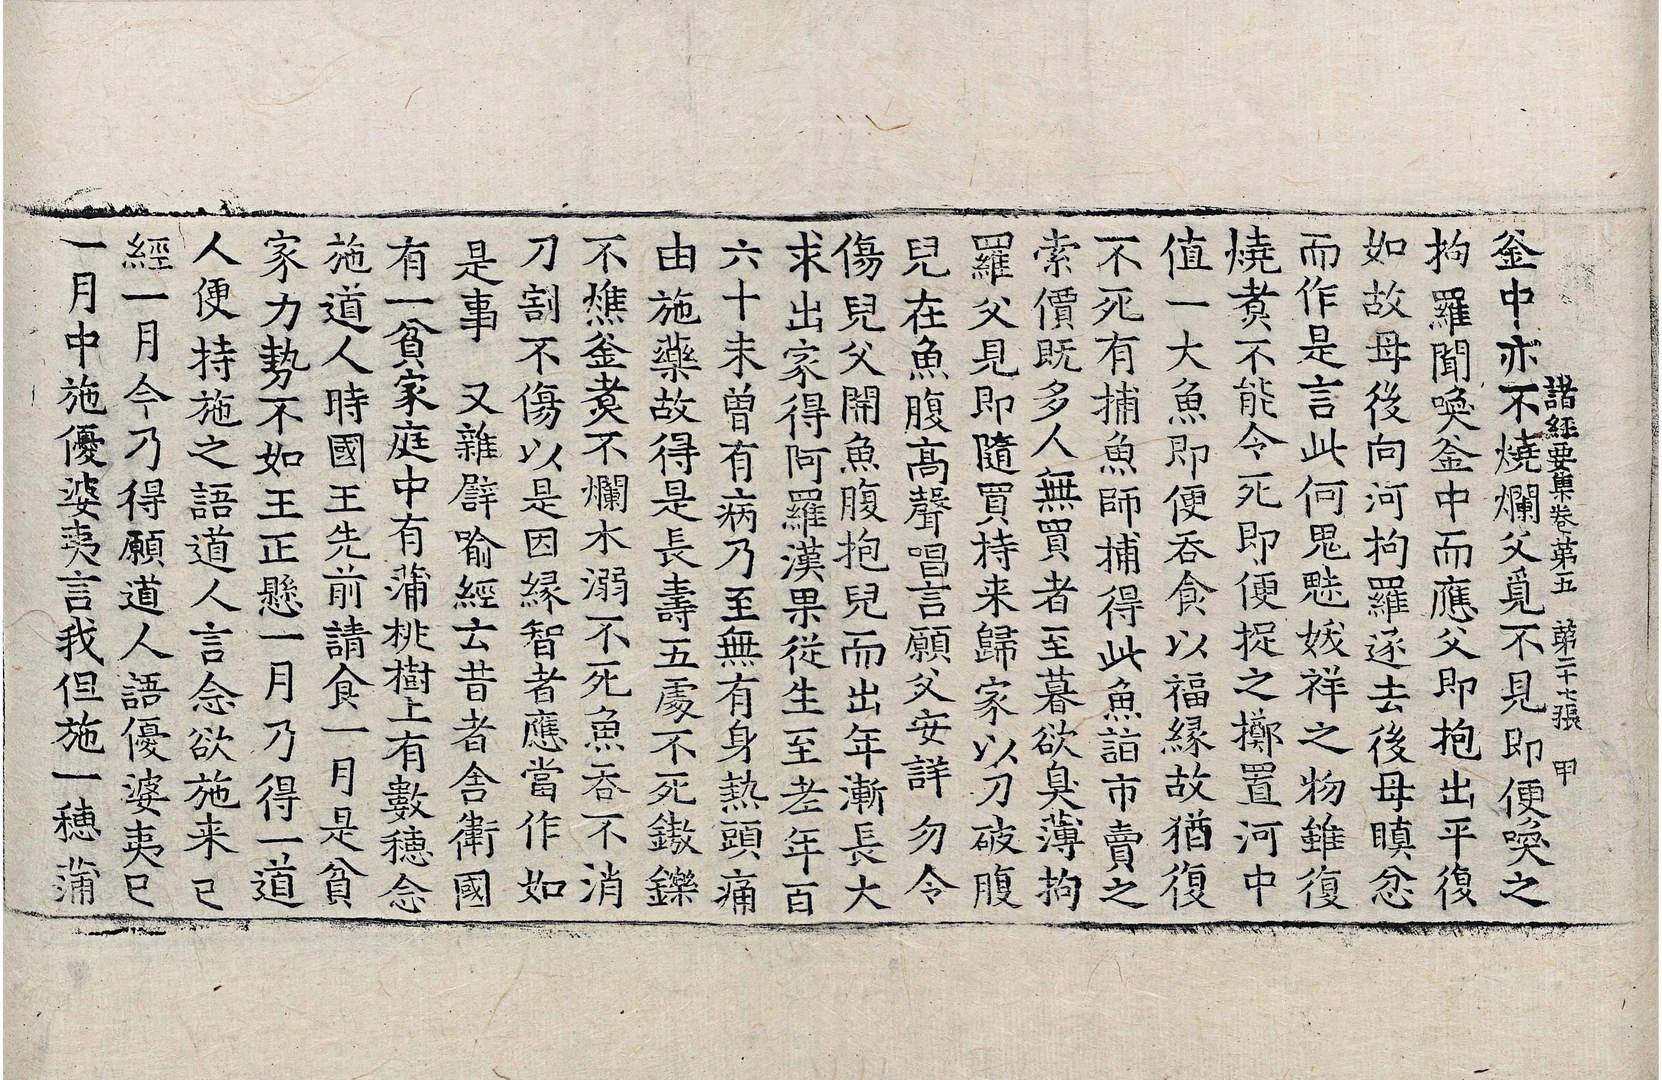 諸經要集卷第五 第二十七張 甲
釜中亦不燒爛父覓不見即便喚之
拘羅聞喚釜中而應父即抱出平復
如故母後向河拘羅逐去後母瞋忿
而作是言此何鬼魅妖祥之物雖復
燒煑不能令死即便捉之擲置河中
值一大魚即便吞食以福縁故猶復
不死有捕魚師捕得此魚詣市賣之
索價既多人無買者至暮欲臭薄拘
羅父見即隨買持来歸家以刀破腹
兒在魚腹高聲唱言願父安詳勿令
傷兒父開魚腹抱兒而出年漸長大
求出家得阿羅漢果從生至老年百
六十未曾有病乃至無有身熱頭痛
由施藥故得是長壽五處不死鏉鑠
不燋釜煑不爛水溺不死魚吞不消
刀割不傷以是因縁智者應當作如
是事　又雜辟喻經云昔者舍衛國
有一貧家庭中有蒲桃樹上有數穗念
施道人時國王先前請食一月是貧
家力勢不如王正懸一月乃得一道
人便持施之語道人言念欲施来已
經一月今乃得願道人語優婆夷已
一月中施優婆夷言我但施一穗蒲